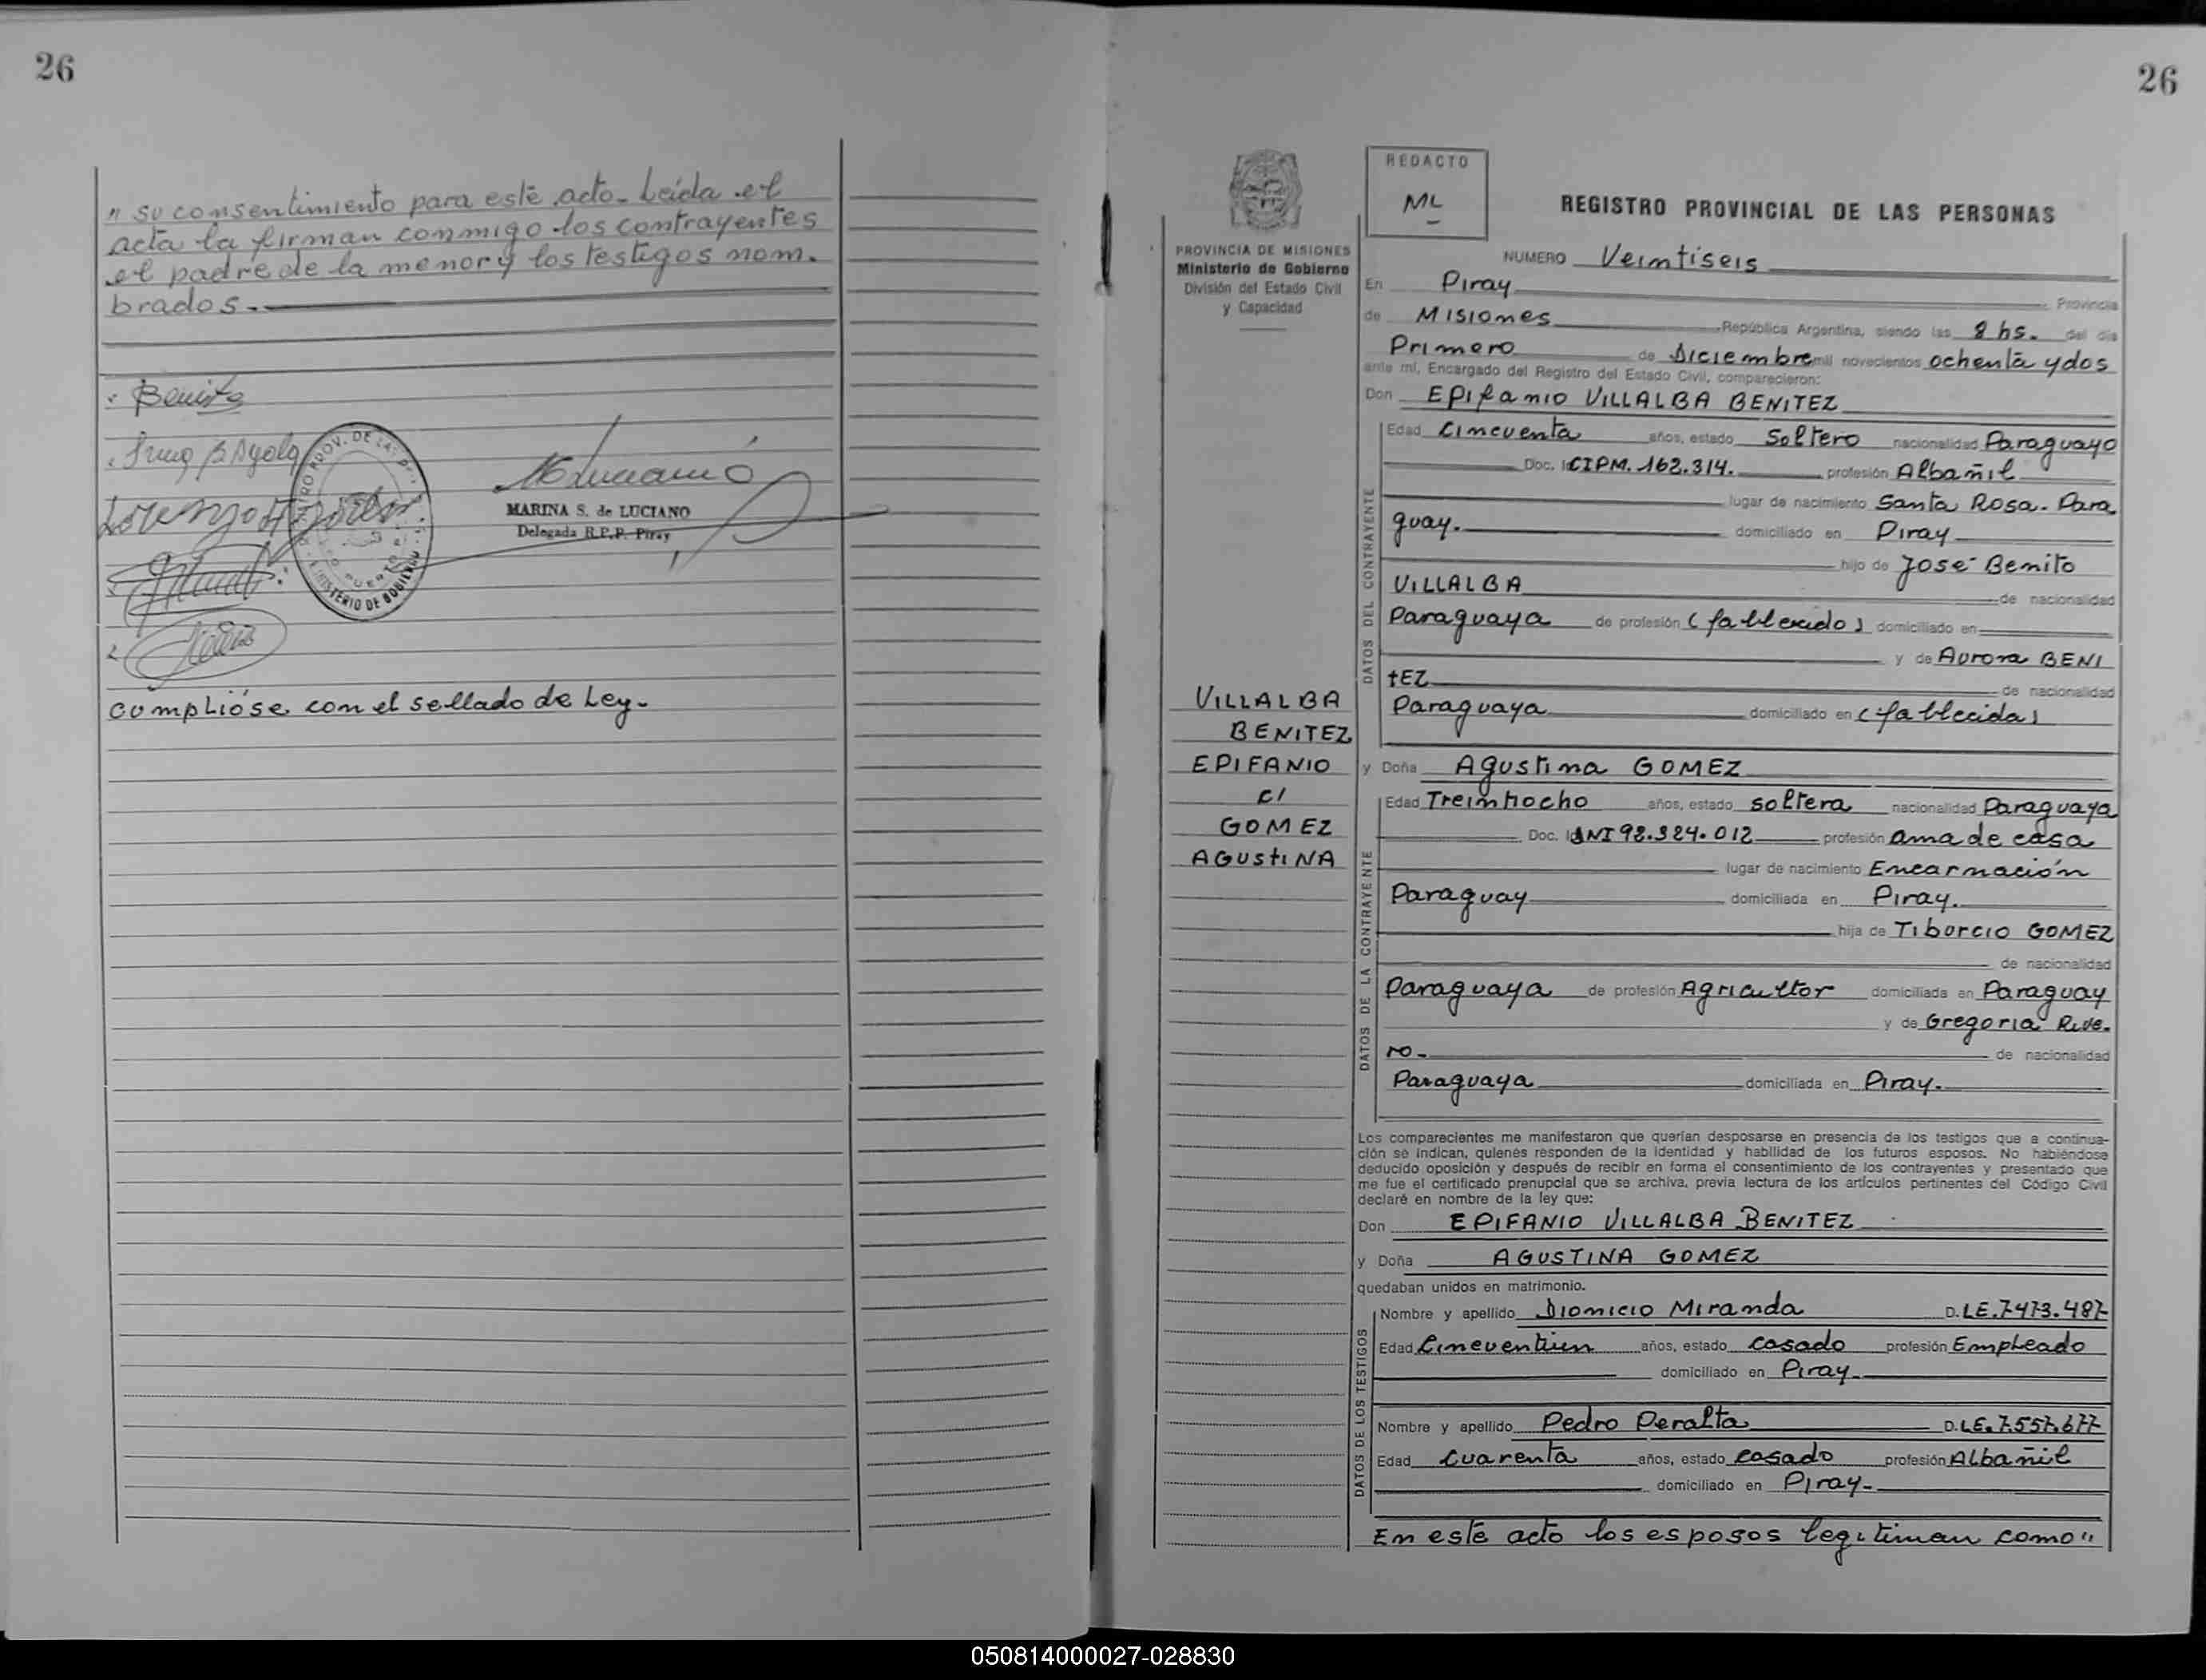 26
" su consentimiento para este acto - Leída el
acta la firman conmigo los contrayentes
el padre de la menor y los testigos nom.
brados.
Benito
MARINA S. de LUCIANO
Delegada R.P.P. Piray
MINISTERIO DE GOBIERNO
2
cumplióse con el sellado de Ley.
26
PROVINCIA DE MISIONES
Ministerio de Gobierno
División del Estado Civil
y Capacidad
VILLALBA
BENITEZ
EPIFANIO
c/
GOMEZ
AGUStINA
REDACTO
ML
REGISTRO PROVINCIAL DE LAS PERSONAS
NUMERO Veintiseis
En Piray Provincia
de Misiones República Argentina, siendo las 8 hs. del día
Primero de Diciembre mil novecientos ochenta y dos
ante mí, Encargado del Registro del Estado Civil, comparecieron:
Don EPIfanio VILLALBA BENITEZ
Edad Cincuenta años, estado Soltero nacionalidad Paraguayo
Doc. I CIPM. 162.314. profesión Albañil
lugar de nacimiento Santa Rosa - Para
guay. domiciliado en Piray
hijo de José Benito
VILLALBA de nacionalidad
Paraguaya de profesión (fallecido) domiciliado en
y de Aurora BENI
tEZ de nacionalidad
Paraguaya domiciliado en (fallecida)
y Doña Agustina GOMEZ
Edad Treintiocho años, estado soltera nacionalidad Paraguaya
Doc. I DNI 92.324.012 profesión ama de casa
lugar de nacimiento Encarnación
Paraguay domiciliada en Piray.
hija de Tiburcio GOMEZ
de nacionalidad
Paraguaya de profesión Agricultor domiciliada en Paraguay
y de Gregoria Rive.
ro. de nacionalidad
Paraguaya domiciliada en Piray.
Los comparecientes me manifestaron que querían desposarse en presencia de los testigos que a continua-
ción se indican, quienes responden de la identidad y habilidad de los futuros esposos. No habiéndose
deducido oposición y después de recibir en forma el consentimiento de los contrayentes y presentado que
me fue el certificado prenupcial que se archiva, previa lectura de los artículos pertinentes del Código Civil
declaré en nombre de la ley que:
Don EPIFANIO VILLALBA BENITEZ
y Doña AGUSTINA GOMEZ
quedaban unidos en matrimonio.
Nombre y apellido Dionicio Miranda D. LE. 7.473.487
Edad Cincuentiun años, estado casado profesión Empleado
domiciliado en Piray.
Nombre y apellido Pedro Peralta D. LE. 7.557.677
Edad Cuarenta años, estado casado profesión Albañil
domiciliado en Piray.
En este acto los esposos legitiman como "
DATOS DEL CONTRAYENTE
DATOS DE LA CONTRAYENTE
DATOS DE LOS TESTIGOS
050814000027-028830